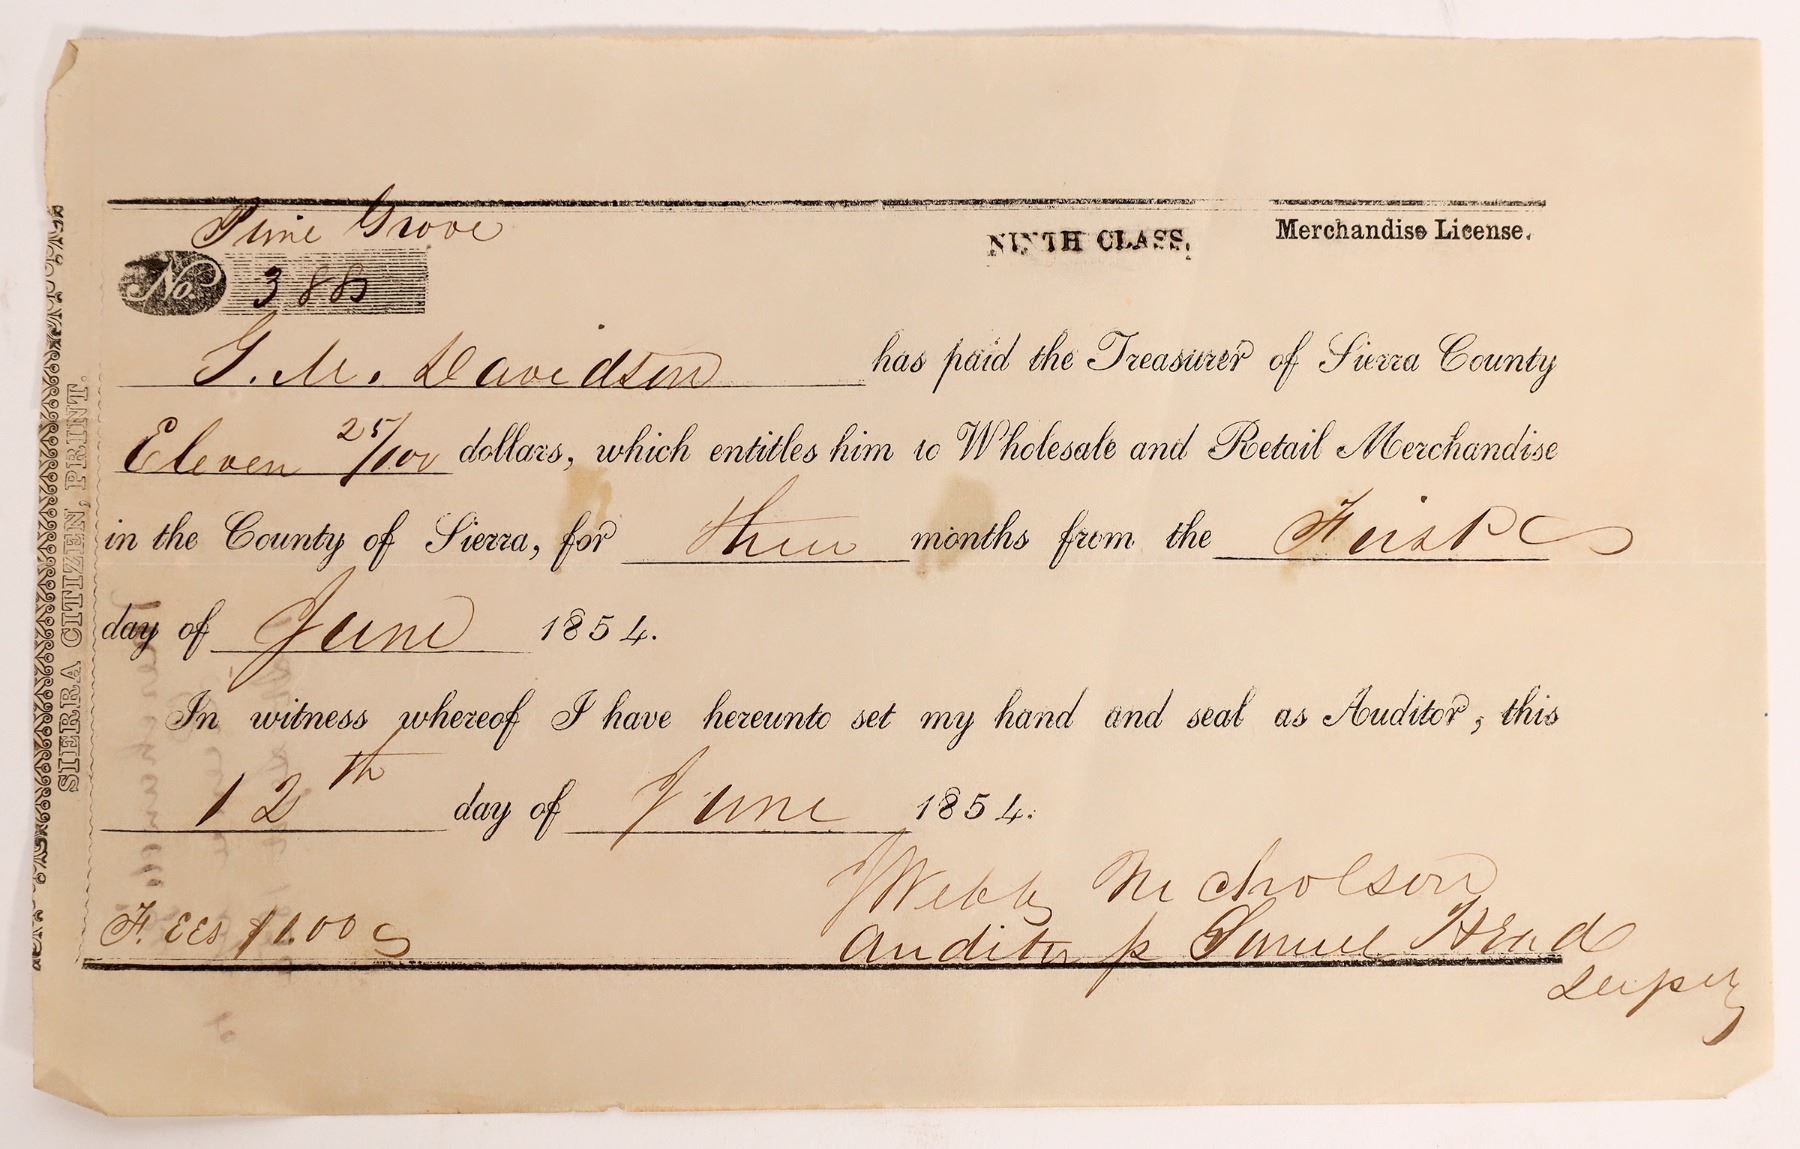 Pine Grove
NINTH CLASS.
Merchandise License.
No. 388
G. M. Davidson has paid the Treasurer of Sierra County
Eleven 25/100 dollars, which entitles him to Wholesale and Retail Merchandise
in the County of Sierra, for three months from the First
day of June 1854.
In witness whereof I have hereunto set my hand and seal as Auditor, this
12th day of June 1854.
Webb Nicholson
Fees $1.00
Auditor pr Samuel Head
Deputy
SIERRA CITIZEN, PRINT.